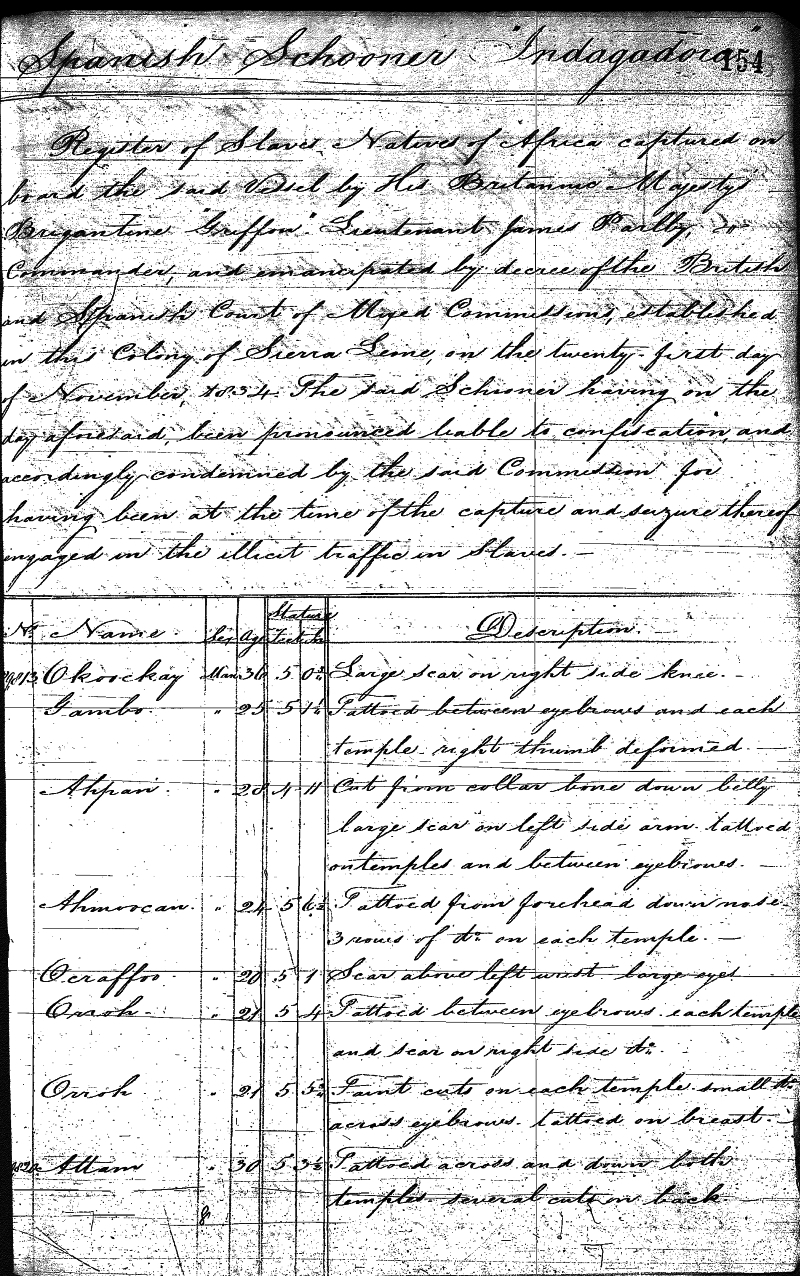 Spanish Schooner "Indagadora" 154
Register of Slaves Natives of Africa captured on
board the said Vessel by His Britannic Majesty's
Brigantine "Griffon" Lieutenant James
Commander, and emancipated by decree of the British
and Spanish Court of Mixed Commissions, established
in this Colony of Sierra Leone, on the twenty-first day
of November, 1834. The said Schooner having on the
day aforesaid, been pronounced liable to confiscation, and
accordingly condemned by the said Commission for
having been at the time of the capture and seizure thereof
engaged in the illicit traffic in Slaves. —
No. Name Sex Age Stature Feet In Description. —
Okoockay Man 36 5 Large scar on right side knee. —
Gambo. " 25 5 Tattoed between eyebrows and each
temple. right thumb deformed. —
Ahpan. " 28 4 11 Cut from collar bone down belly
large scar on left side arm. tattoed
on temples and between eyebrows. —
Ahmoocan. " 24 5 Tattoed from forehead down nose.
3 rows of do. on each temple. —
Ocraffoo. " 20 5 1 Scar above left wrist large eyes
Orroh. " 21 5 4 Tattoed between eyebrows. each temple
and scar on right side do.
Orroh " 21 5 Faint cuts on each temple. small do.
across eyebrows. tattoed on breast. —
Attam " 30 5 3½ Tattoed across and down both
temples. several cuts on back
8